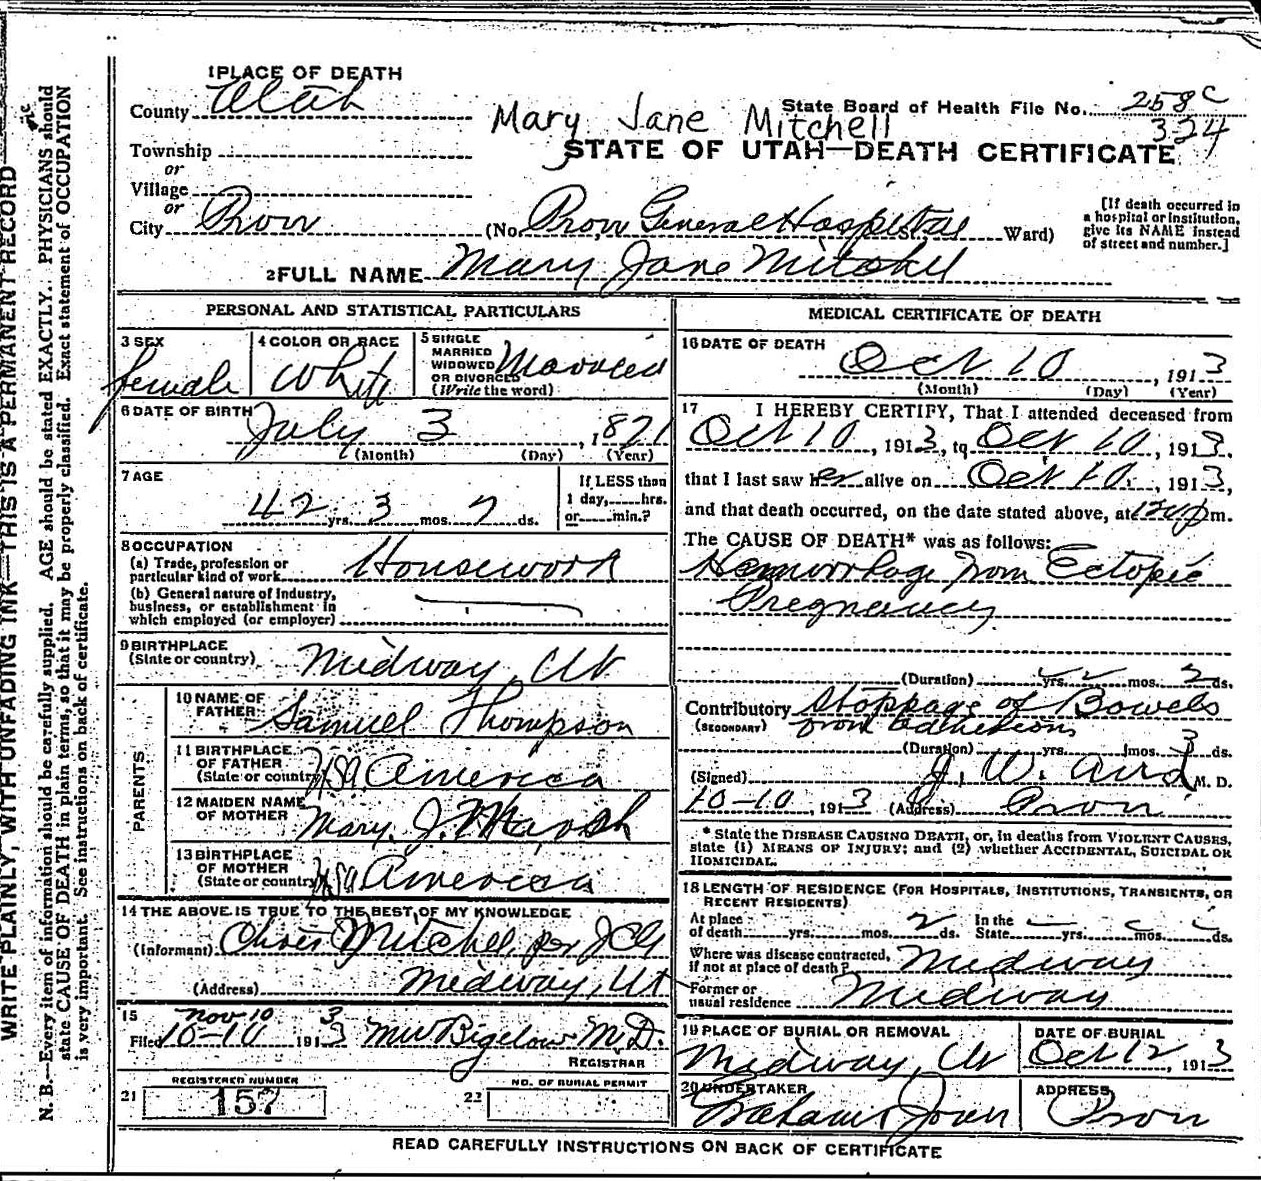 1 PLACE OF DEATH
County Utah
State Board of Health File No. 258 c
324
Mary Jane Mitchell
STATE OF UTAH—DEATH CERTIFICATE
Township
or
Village
or
City Provo (No. Provo General Hospital St. Ward)
[If death occurred in
a hospital or institution,
give its NAME instead
of street and number.]
2 FULL NAME Mary Jane Mitchell
PERSONAL AND STATISTICAL PARTICULARS
3 SEX
female
4 COLOR OR RACE
White
5 SINGLE
MARRIED
WIDOWED
OR DIVORCED
(Write the word)
Married
6 DATE OF BIRTH
July 3, 1871
(Month) (Day) (Year)
7 AGE
42 yrs. 3 mos. 7 ds.
If LESS than
1 day, hrs.
or min.?
8 OCCUPATION
(a) Trade, profession or
particular kind of work
Housework
(b) General nature of industry,
business, or establishment in
which employed (or employer)
9 BIRTHPLACE
(State or country) Midway, Ut
PARENTS
10 NAME OF
FATHER Samuel Thompson
11 BIRTHPLACE
OF FATHER
(State or country) USA America
12 MAIDEN NAME
OF MOTHER Mary J.
13 BIRTHPLACE
OF MOTHER
(State or country) USA America
14 THE ABOVE IS TRUE TO THE BEST OF MY KNOWLEDGE
(Informant) Mitchell, per
(Address) Midway, Ut
15
Nov 10 3
Filed 10-10 1913 MW Bigelow M.D.
REGISTRAR
REGISTERED NUMBER
21 157
NO. OF BURIAL PERMIT
22
MEDICAL CERTIFICATE OF DEATH
16 DATE OF DEATH
Oct 10, 1913
(Month) (Day) (Year)
17 I HEREBY CERTIFY, That I attended deceased from
Oct 10, 1913, to Oct 10, 1913,
that I last saw her alive on Oct 10, 1913,
and that death occurred, on the date stated above, at m.
The CAUSE OF DEATH* was as follows:
Hemorrhage from Ectopic
Pregnancy
(Duration) yrs. 2 mos. 2 ds.
Contributory Stoppage of Bowels
(SECONDARY) from adhesions
(Duration) yrs. mos. 3 ds.
(Signed) J. W. Aird M. D.
10-10, 1913 (Address) Provo
* State the DISEASE CAUSING DEATH, or, in deaths from VIOLENT CAUSES,
state (1) MEANS OF INJURY; and (2) whether ACCIDENTAL, SUICIDAL OR
HOMICIDAL.
18 LENGTH OF RESIDENCE (FOR HOSPITALS, INSTITUTIONS, TRANSIENTS, OR
RECENT RESIDENTS)
At place
of death yrs. mos. 2 ds. In the
State yrs. mos. ds.
Where was disease contracted,
if not at place of death? Midway
Former or
usual residence Midway
19 PLACE OF BURIAL OR REMOVAL
Midway, Ut
DATE OF BURIAL
Oct 12, 1913
20 UNDERTAKER
Graham
ADDRESS
Provo
READ CAREFULLY INSTRUCTIONS ON BACK OF CERTIFICATE
WRITE PLAINLY, WITH UNFADING INK—THIS IS A PERMANENT RECORD
N. B.—Every item of information should be carefully supplied. AGE should be stated EXACTLY. PHYSICIANS should
state CAUSE OF DEATH in plain terms, so that it may be properly classified. Exact statement of OCCUPATION
is very important. See instructions on back of certificate.